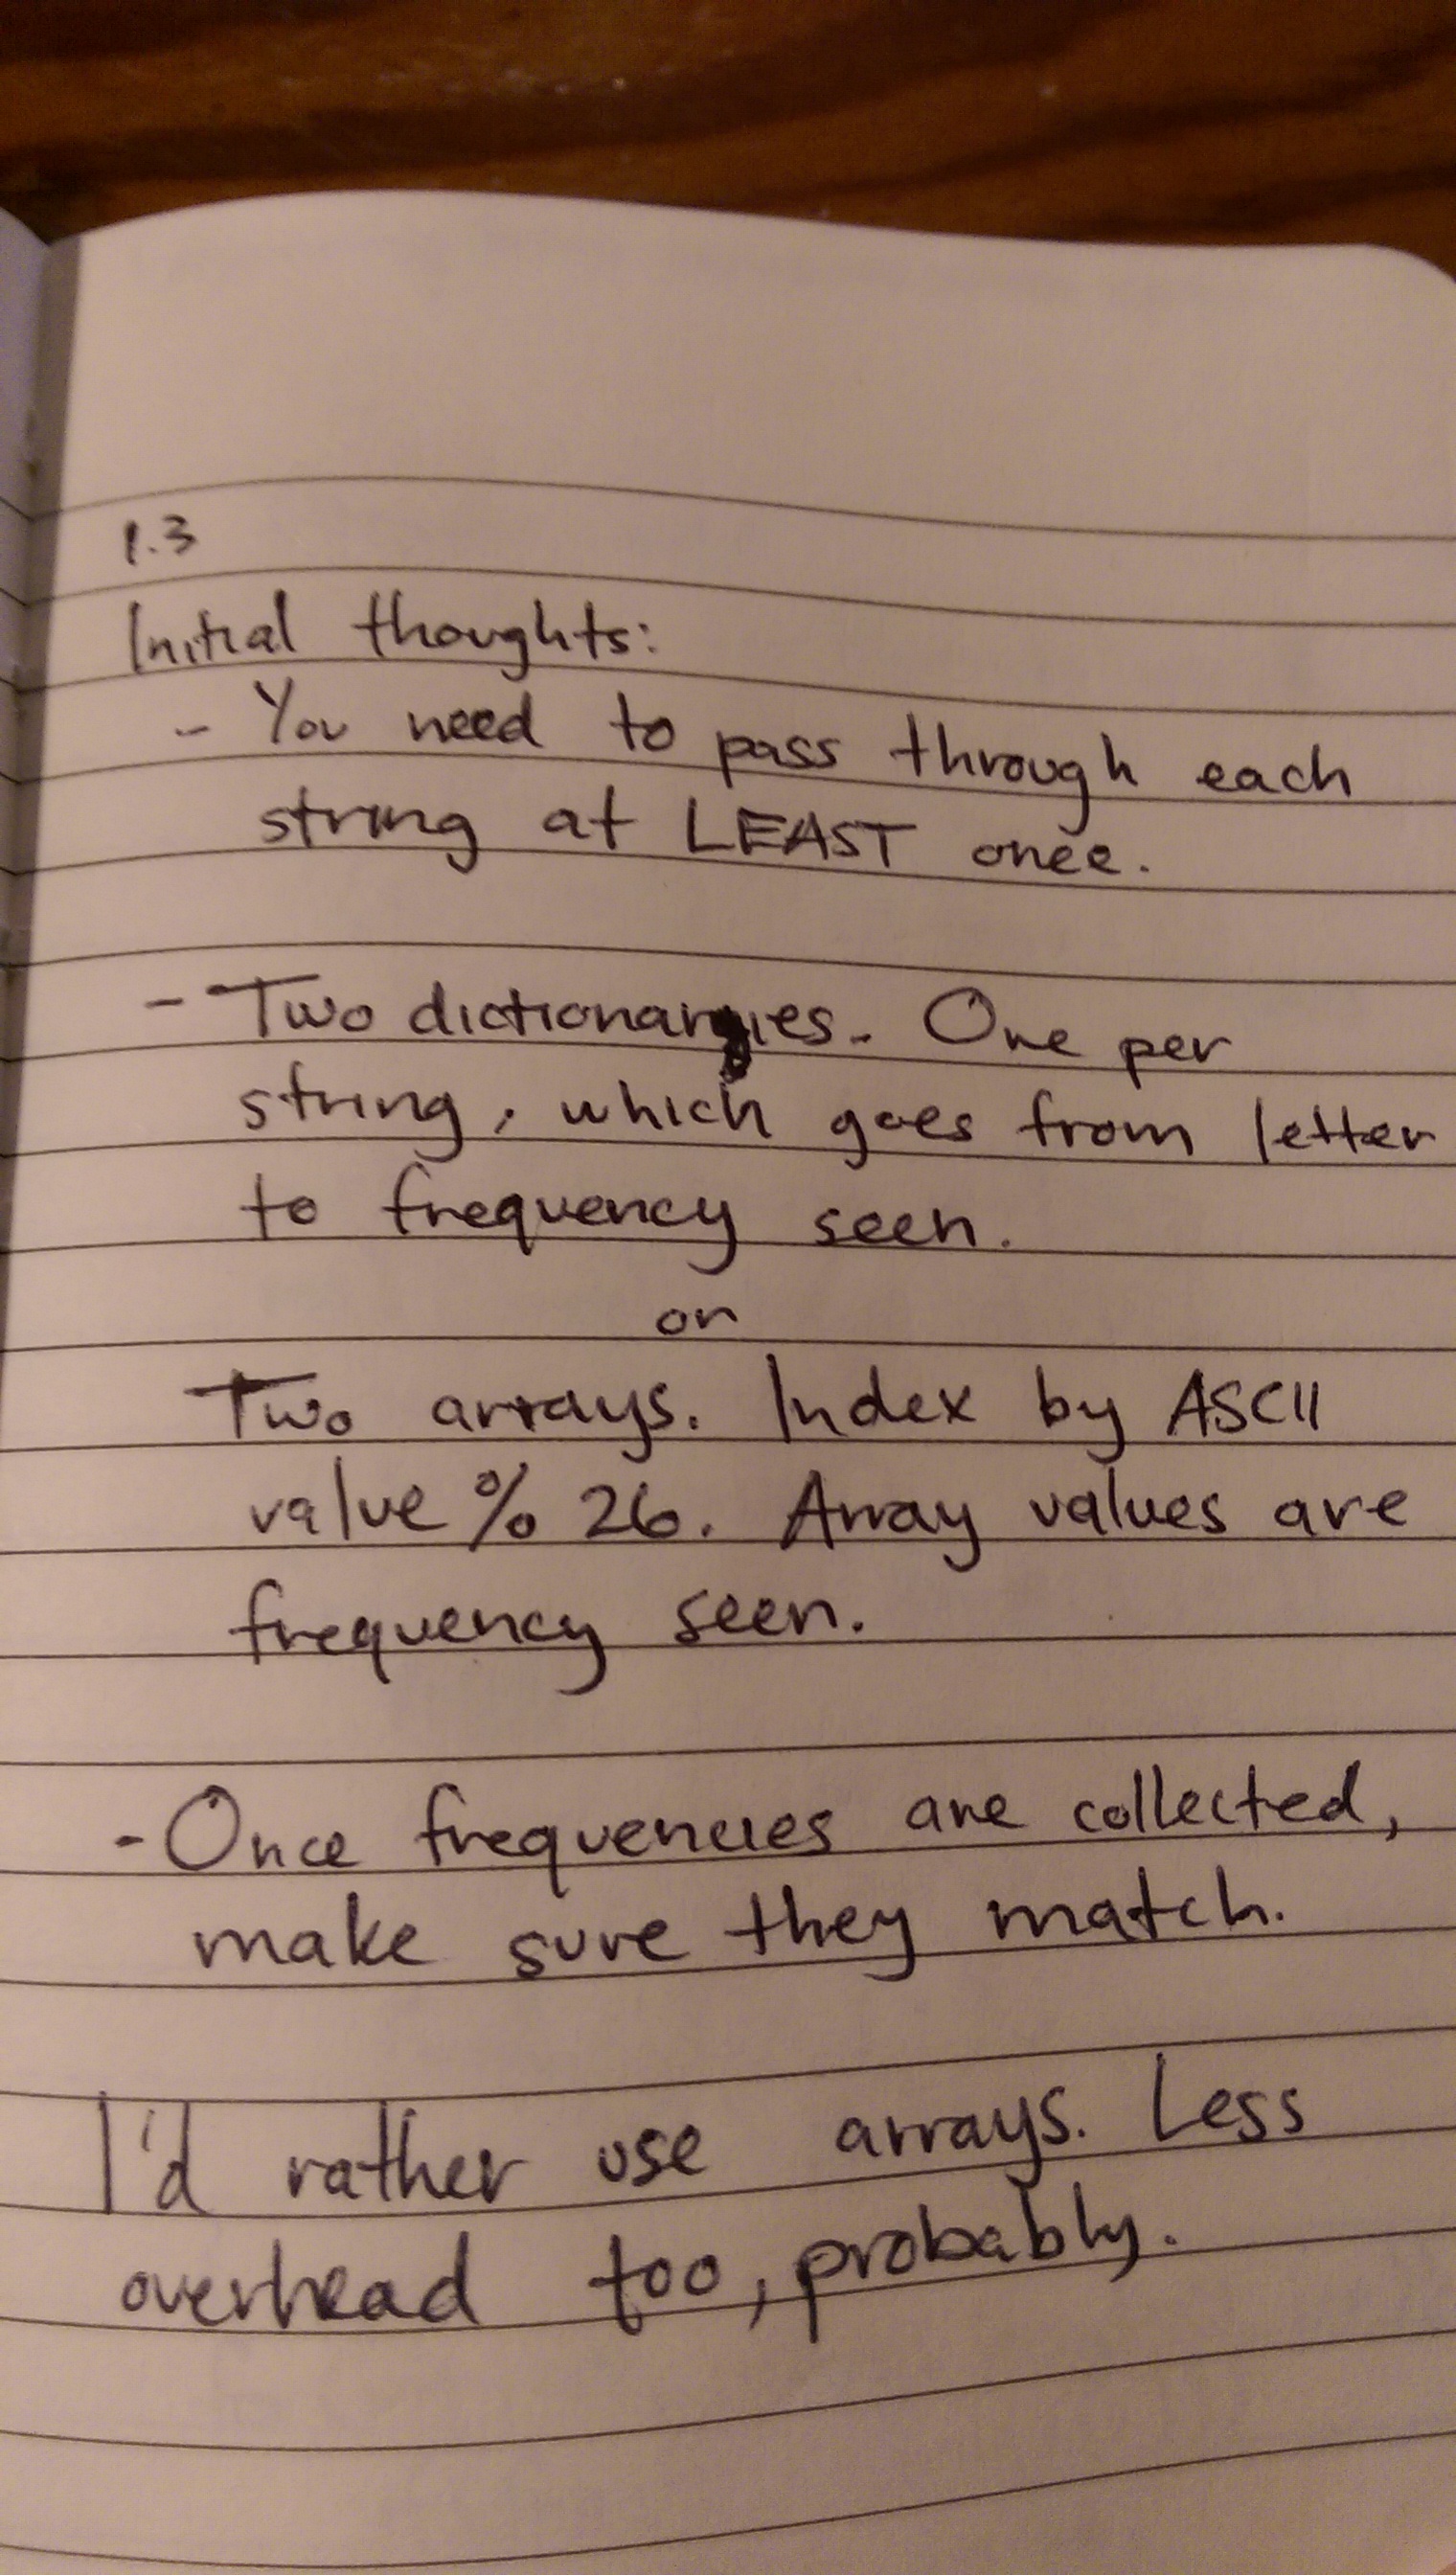 1.3
Initial thoughts:
- You need to pass through each
string at LEAST once.
- Two dictionaries. One per
string, which goes from letter
to frequency seen.
or
Two arrays. Index by ASCII
value % 26. Array values are
frequency seen.
- Once frequencies are collected,
make sure they match.
I'd rather use arrays. Less
overhead too, probably.